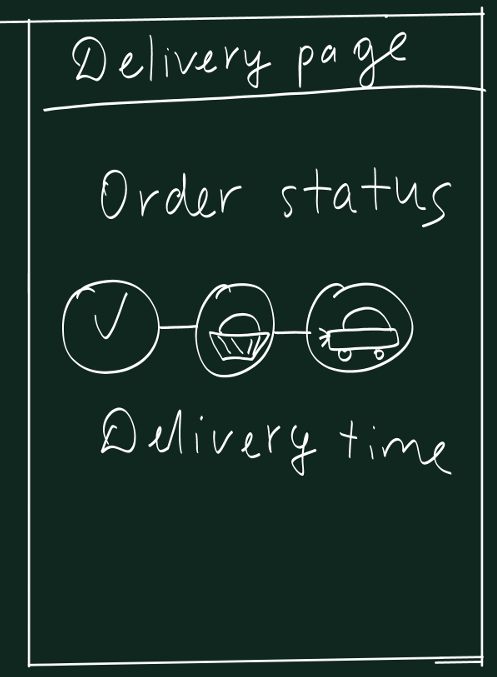 Delivery page
Order status
Delivery time